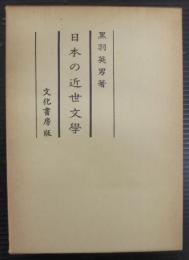 黒羽英男著
日本の近世文學
文化書房版